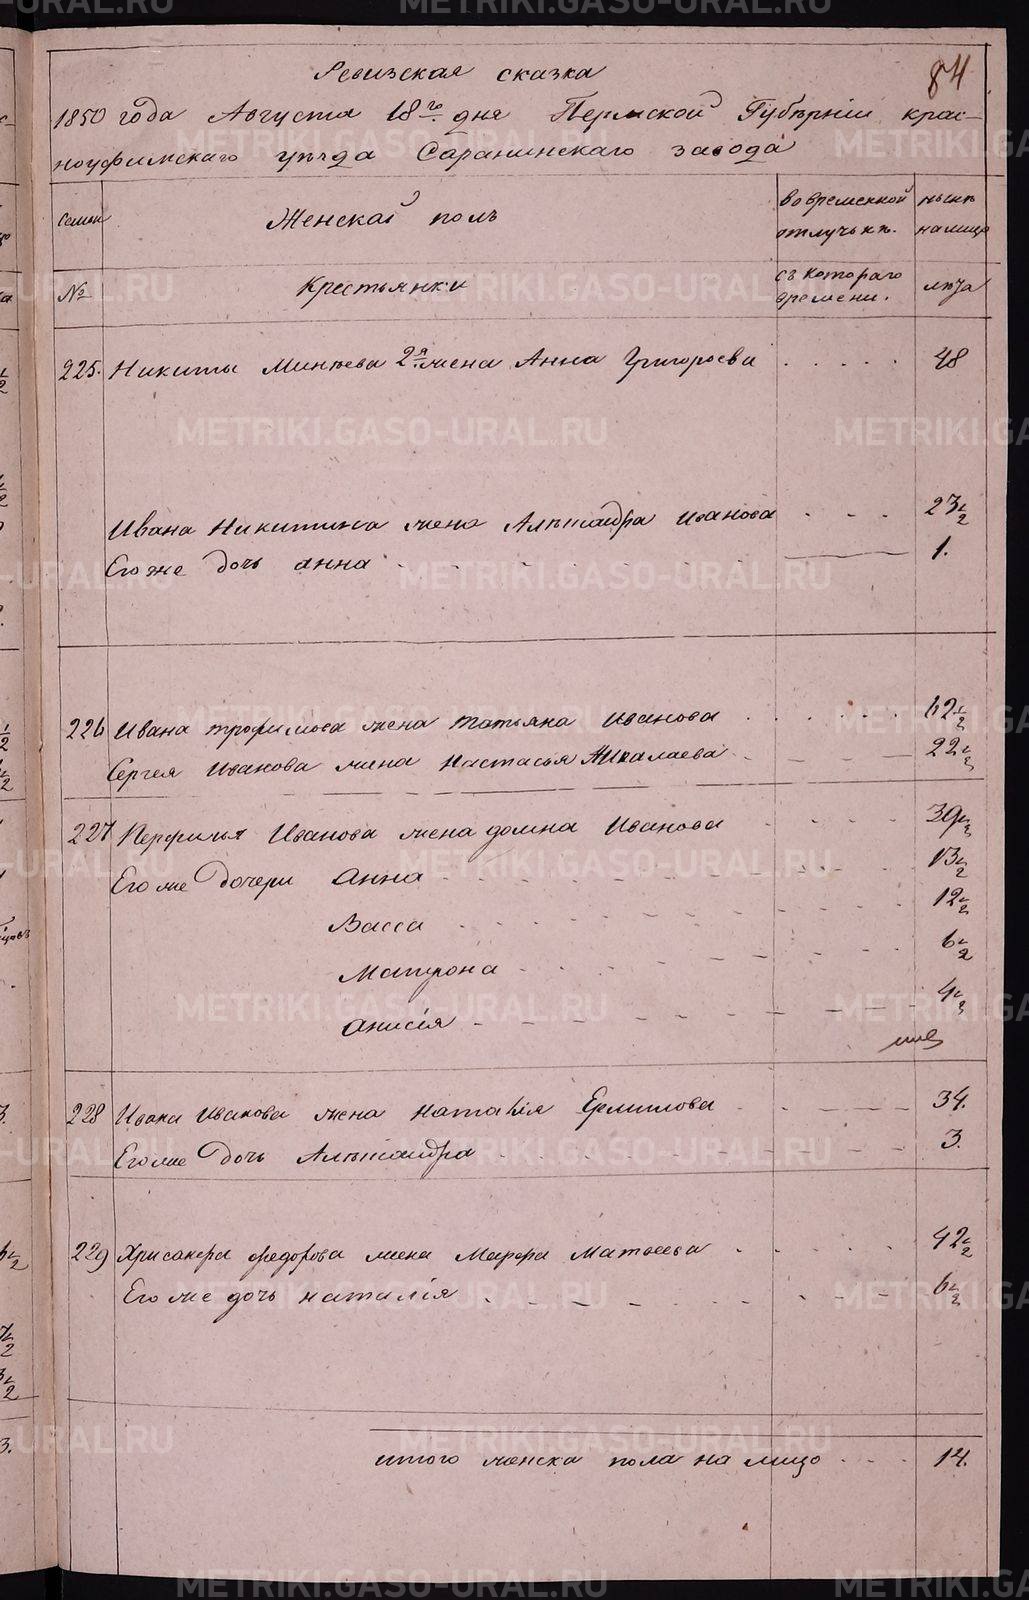 84
Ревизская сказка
1850 года Августа 18го дня Пермской Губерніи крас-
ноуфимскаго уѣзда Саранинскаго завода
семьи
Женской полъ
во временной отлучькѣ.
нынѣ на лицо
№
Крестьянки
съ котораго времени.
лѣта
225. Никиты Минѣева 2я жена Анна Григорьева 48
Ивана Никитина жена Алѣксандра Иванова 23 1/2
Его же дочь анна 1.
226 Ивана трофимова жена татьяна Иванова 62 1/2
Сергея Иванова жена Настасья Николаева 22 1/2
227 Перфилья Иванова жена домна Иванова 39 1/2
Его же дочери Анна 13 1/2
Васса 12 1/2
Матрона 6 1/2
Анисія 4 1/2
228 Ивана Иванова жена наталія Ермилова 34.
Его же дочь Алѣксандра 3.
229 Хрисанфа федорова жена Марфа Матвеева 42 1/2
Его же дочь наталія 6 1/2
итого женска пола на лицо 14.
METRIKI.GASO-URAL.RU